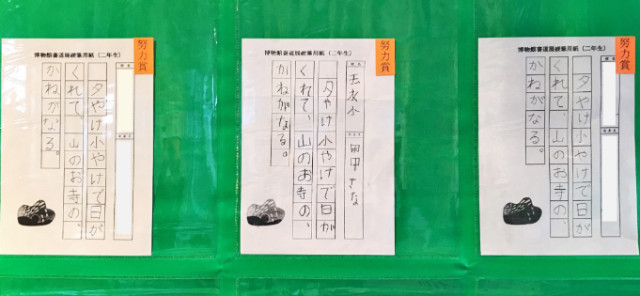 博物館書道展硬筆用紙（二年生）
努力賞
夕やけ小やけで日が
くれて、山のお寺の、
かねがなる。
博物館書道展硬筆用紙（二年生）
努力賞
田中きな
夕やけ小やけで日が
くれて、山のお寺の、
かねがなる。
博物館書道展硬筆用紙（二年生）
努力賞
夕やけ小やけで日が
くれて、山のお寺の、
かねがなる。